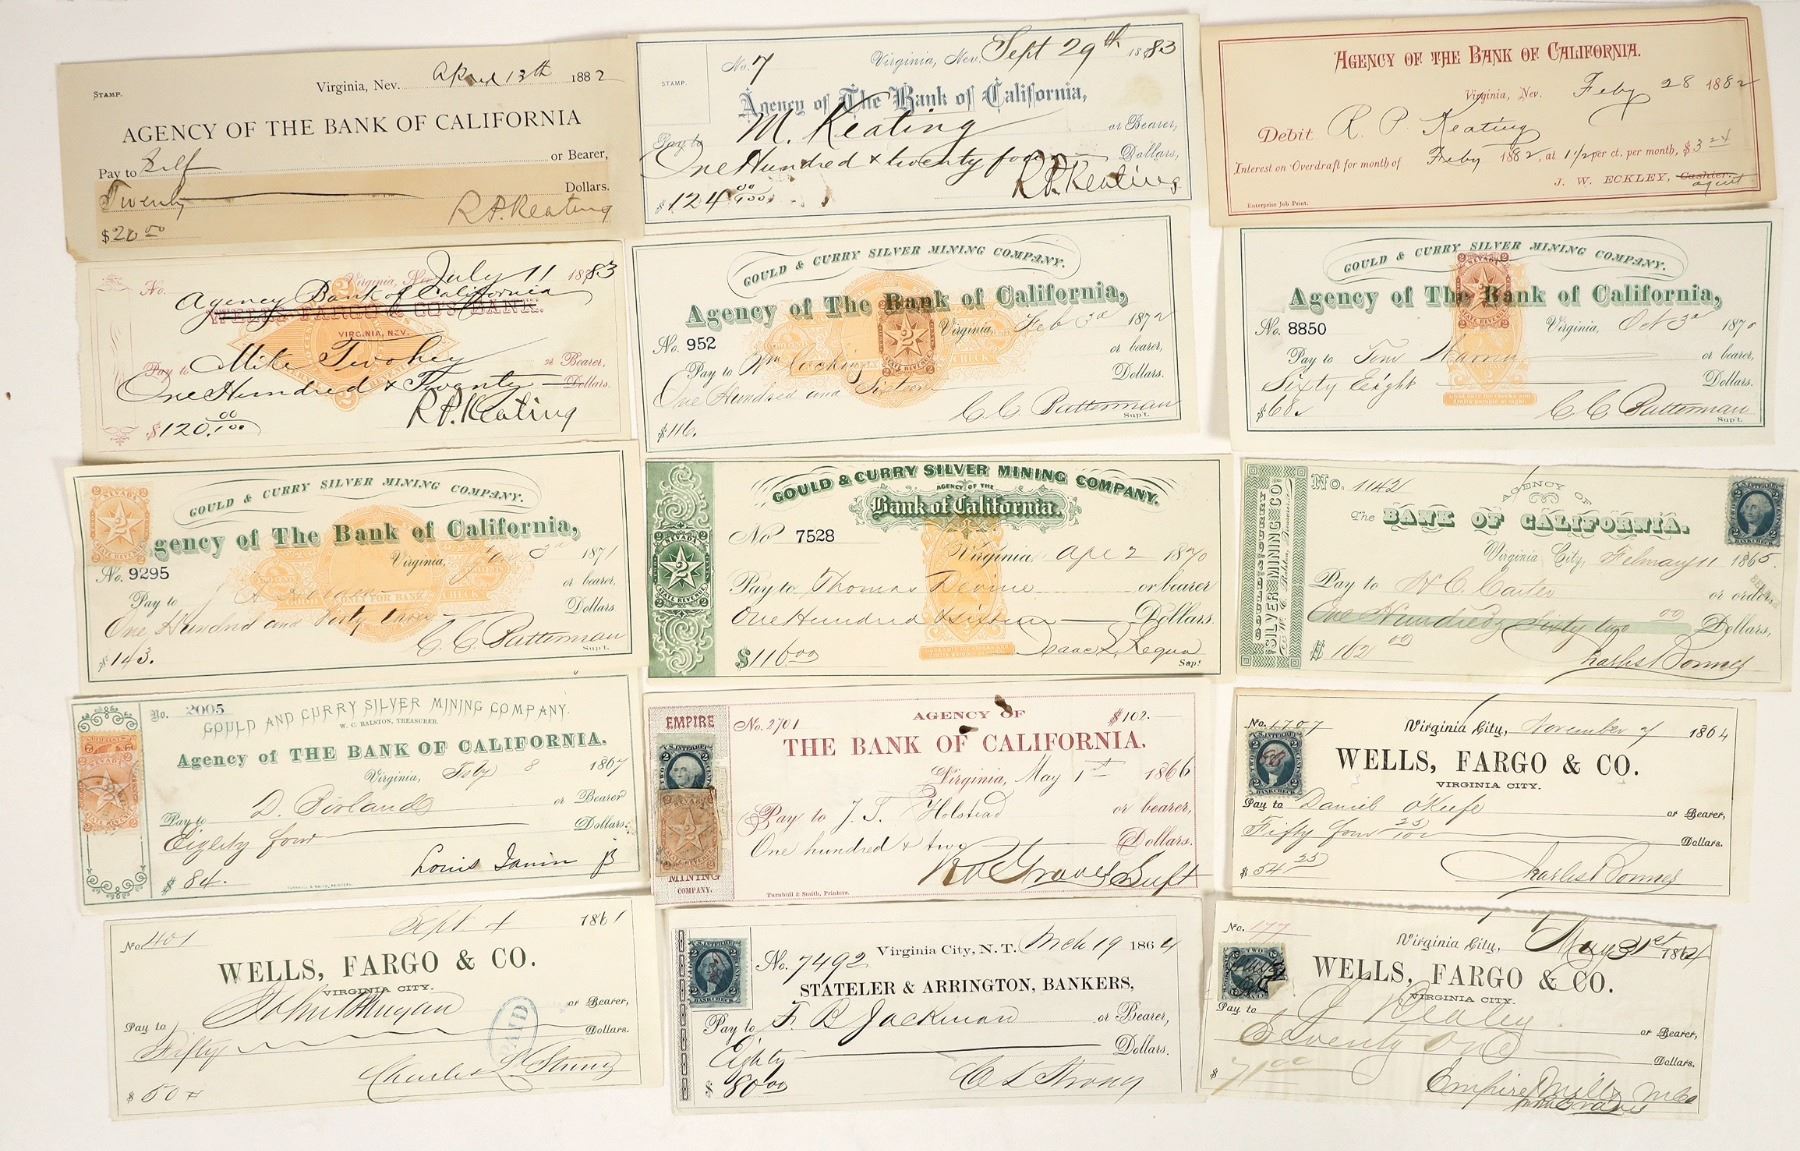 STAMP.
Virginia, Nev. April 13th 1882
AGENCY OF THE BANK OF CALIFORNIA
Pay to Self or Bearer,
Twenty Dollars.
$20 00 R. P. Keating
No. 7 Virginia, Nev. Sept 29th 1883
STAMP.
Agency of The Bank of California,
Pay to M. Keating or Bearer,
One Hundred & twenty four Dollars,
$124 00/100 R. P. Keating
AGENCY OF THE BANK OF CALIFORNIA.
Virginia, Nev. Feby 28 1882
Debit R. P. Keating
Interest on Overdraft for month of Feby 1882, at 1 1/2 per ct. per month, $3 24
J. W. ECKLEY, Cashier.
agent
Enterprise Job Print.
No. Virginia, Nev. July 11 1883
Agency Bank of California
WELLS FARGO & CO'S BANK.
VIRGINIA, NEV.
Pay to Mike Twohey or Bearer,
One Hundred & Twenty Dollars.
$120.00/100 R. P. Keating
GOULD & CURRY SILVER MINING COMPANY.
Agency of The Bank of California,
No. 952 Virginia, Feb 3d 1872
Pay to Wm Cocking or bearer,
One Hundred and Sixteen Dollars.
$116. C C Batterman
Sup't.
GOULD & CURRY SILVER MINING COMPANY.
Agency of The Bank of California,
No. 8850 Virginia, Oct 3d 1870
Pay to Tom or bearer,
Sixty Eight Dollars.
$68. C C Batterman
Sup't.
NEVADA
GOULD & CURRY SILVER MINING COMPANY.
Agency of The Bank of California,
Virginia, 3d 1871
No. 9295 or bearer,
Pay to
One Hundred and Forty three Dollars.
$143. C. C. Batterman
Sup't.
GOULD & CURRY SILVER MINING COMPANY.
AGENCY OF THE
Bank of California.
No 7528
Virginia Apr 2 1870
NEVADA
2
STATE REVENUE
Pay to Thomas Devine or bearer
One Hundred Sixteen Dollars.
$116 00 Isaac L. Requa
Sup't
No. 1142
AGENCY OF
The BANK OF CALIFORNIA.
Virginia City, February 11 1865
Pay to H C Carter or order,
One Hundred Sixty two 00 Dollars,
$162 00 Charles Bonner
SILVER MINING CO.
No. 2005
GOULD AND CURRY SILVER MINING COMPANY.
W. C. RALSTON, TREASURER.
Agency of THE BANK OF CALIFORNIA.
Virginia, Feby 8 1867
Pay to D. or Bearer
Eighty four Dollars.
$84. Louis Janin Jr
EMPIRE
MINING
COMPANY.
No. 2701 AGENCY OF $102.
THE BANK OF CALIFORNIA.
Virginia, May 1st 1866
Pay to J. T. Holstead or bearer,
One hundred & two Dollars.
Graves Supt
Turnbull & Smith, Printers.
No. 1707 Virginia City, November 7 1864
WELLS, FARGO & CO.
VIRGINIA CITY.
Pay to Daniel O'Keefe or Bearer,
Fifty four 25/100 Dollars.
$54 25 Charles Bonner
No. 401 Sept 4 1861
WELLS, FARGO & CO.
VIRGINIA CITY.
Pay to John or Bearer,
Fifty Dollars.
PAID
$50 Charles L Strong
Virginia City, N. T. Mch 19 1864
No. 7492
STATELER & ARRINGTON, BANKERS,
Pay to F. B Jackman or Bearer,
Eighty Dollars.
$80.00 C L Strong
No. 177 Virginia City, May 31st
WELLS, FARGO & CO.
VIRGINIA CITY.
Pay to J or Bearer,
Seventy One Dollars.
$71 00 Empire Mill